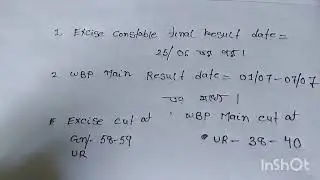 1. Excise Constable final Result date =
25/06 এর পর।
2. WBP Main Result date = 01/07-07/07
এর মধ্যে।
Excise cut at WBP Main cut at
Gen- 58-59 UR - 38 - 40
UR
InShOt